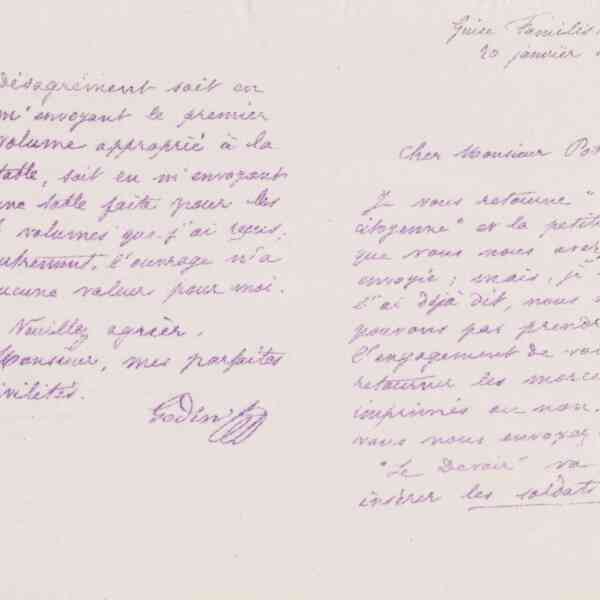 désagrément soit en
m'envoyant le premier
volume approprié à la
table, soit en m'envoyant
une table faite pour les
volumes que j'ai reçus.
autrement, l'ouvrage n'a
aucune valeur pour moi.
Veuillez agréer,
Monsieur, mes parfaites
civilités.
Godin
Guise Familis
20 janvier
Cher Monsieur Po
Je vous retourne "
citoyenne" et la petit
que vous nous avez
envoyée; mais, je
l'ai déjà dit, nous
pouvons pas prendr
l'engagement de vou
retourner les morc
imprimés ou non,
vous nous envoyez
"Le Devoir" va
insérer les soldats